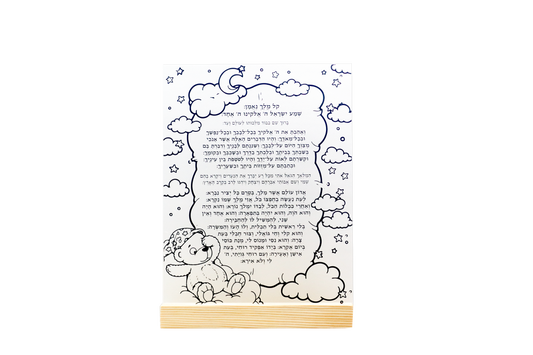 קל מלך נאמן:
שמע ישראל ה' אלקינו ה' אחד
ברוך שם כבוד מלכותו לעולם ועד
ואהבת את ה' אלקיך בכל לבבך ובכל נפשך
ובכל מאדך: והיו הדברים האלה אשר אנכי
מצוך היום על לבבך: ושננתם לבניך ודברת בם
בשבתך בביתך ובלכתך בדרך ובשכבך ובקומך:
וקשרתם לאות על ידך והיו לטטפת בין עיניך:
וכתבתם על מזזות ביתך ובשעריך:
המלאך הגאל אתי מכל רע יברך את הנערים ויקרא בהם
שמי ושם אבותי אברהם ויצחק וידגו לרב בקרב הארץ:
אדון עולם אשר מלך, בטרם כל יציר נברא:
לעת נעשה בחפצו כל, אזי מלך שמו נקרא:
ואחרי ככלות הכל, לבדו ימלוך נורא: והוא היה
והוא הוה, והוא יהיה בתפארה: והוא אחד ואין
שני, להמשיל לו להחבירה:
בלי ראשית בלי תכלית, ולו העז והמשרה:
והוא קלי וחי גואלי, וצור חבלי בעת
צרה: והוא נסי ומנוס לי, מנת כוסי
ביום אקרא: בידו אפקיד רוחי, בעת
אישן ואעירה: ועם רוחי גויתי, ה'
לי ולא אירא: